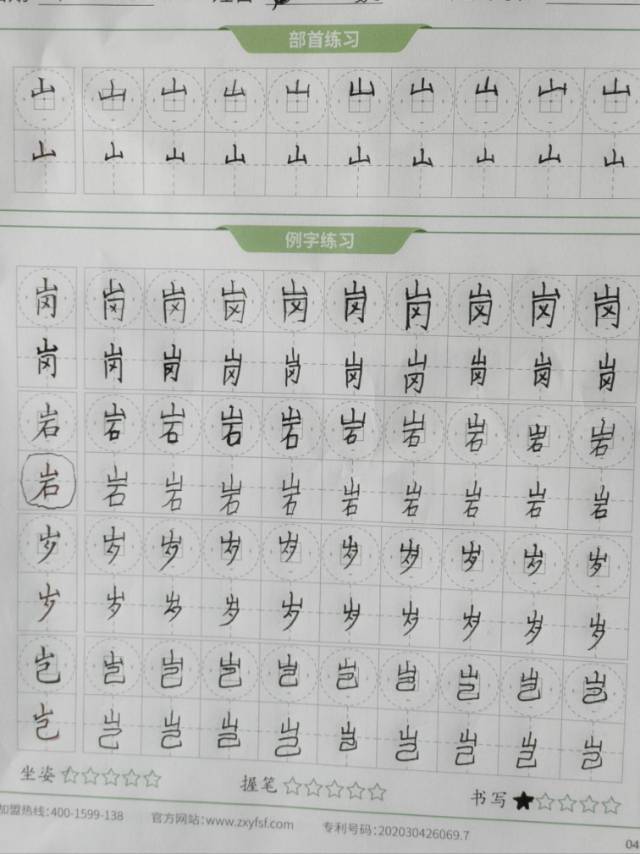 部首练习
山 山 山 山 山 山 山 山 山 山
山 山 山 山 山 山 山 山 山 山
例字练习
岗 岗 岗 岗 岗 岗 岗 岗 岗 岗
岗 岗 岗 岗 岗 岗 岗 岗 岗 岗
岩 岩 岩 岩 岩 岩 岩 岩 岩 岩
岩 岩 岩 岩 岩 岩 岩 岩 岩 岩
岁 岁 岁 岁 岁 岁 岁 岁 岁 岁
岁 岁 岁 岁 岁 岁 岁 岁 岁 岁
岂 岂 岂 岂 岂 岂 岂 岂 岂 岂
岂 岂 岂 岂 岂 岂 岂 岂 岂 岂
坐姿 握笔 书写
加盟热线:400-1599-138 官方网站:www.zxyfsf.com 专利号码:202030426069.7
04